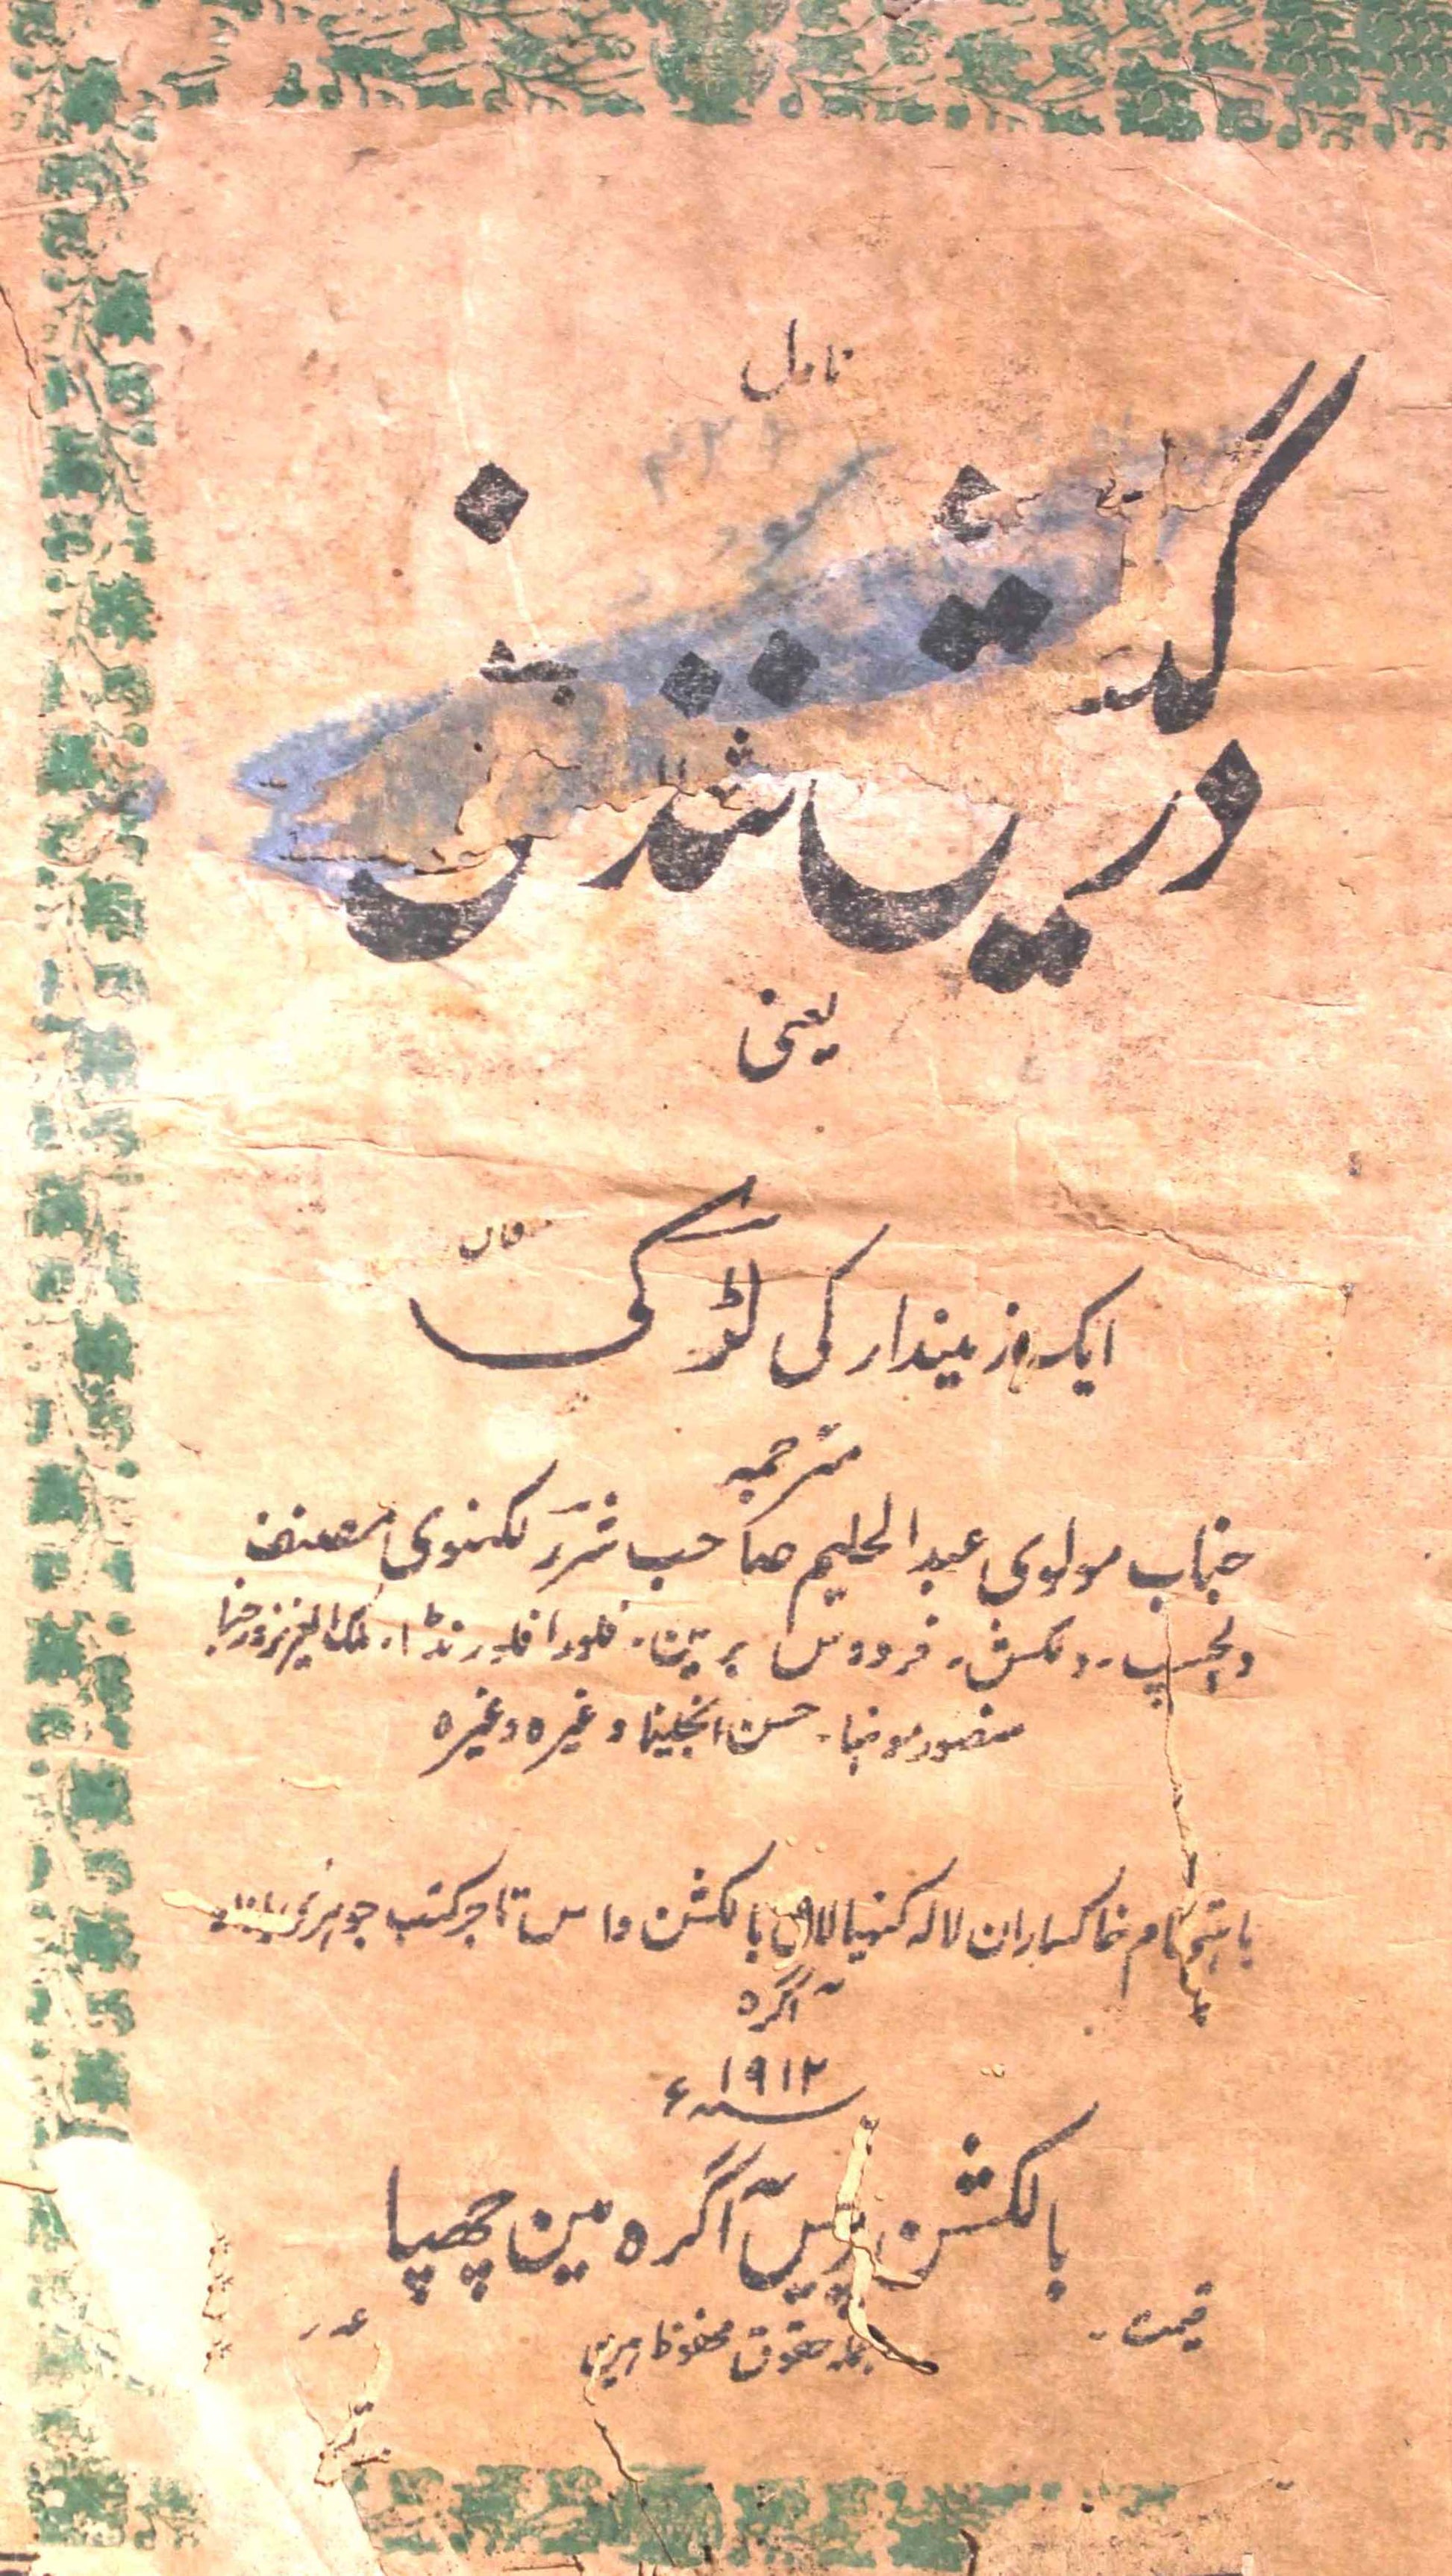 ناول
در
یعنی
ایک زمیندار کی لڑکی
مترجمہ
جناب مولوی عبدالحلیم صاحب شرر لکهنوی مصنف
دلچسپ۔ دلکش۔ فردوس برین۔ فلورا فلورنڈا۔ ملک العزیز ورجنا
منصور موہنا۔ حسن انجلینا وغیرہ وغیرہ
باہتمام خاکساران لالہ کنہیالال بالکشن داس تاجر کتب جوہری بازار
آگرہ
سنہ ۱۹۱۲ء
بالکشن پریس آگرہ مین چھپا
قیمت۔
جملہ حقوق محفوظ ہیں